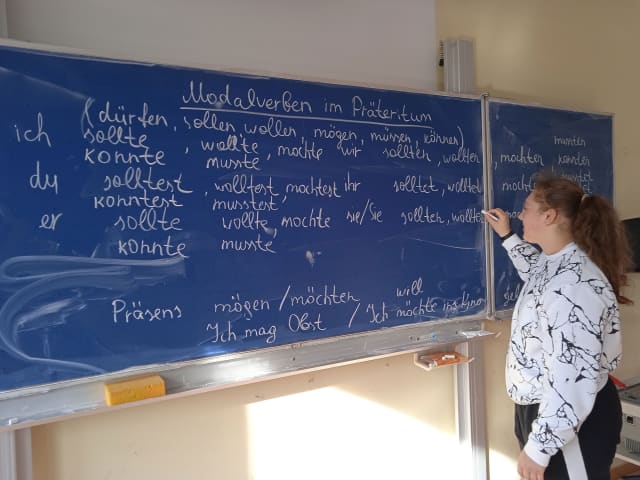 Modalverben im Präteritum
(dürfen, sollen, wollen, mögen, müssen, können)
ich sollte, wollte, mochte wir sollten, wollten, mochten konnten mussten
konnte musste
du solltest, wolltest, mochtest ihr solltet, wolltet
konntest musstest
er sollte wollte mochte sie/Sie sollten, wollten
konnte musste
will
Präsens mögen / möchten
Ich mag Obst / Ich möchte ins Kino